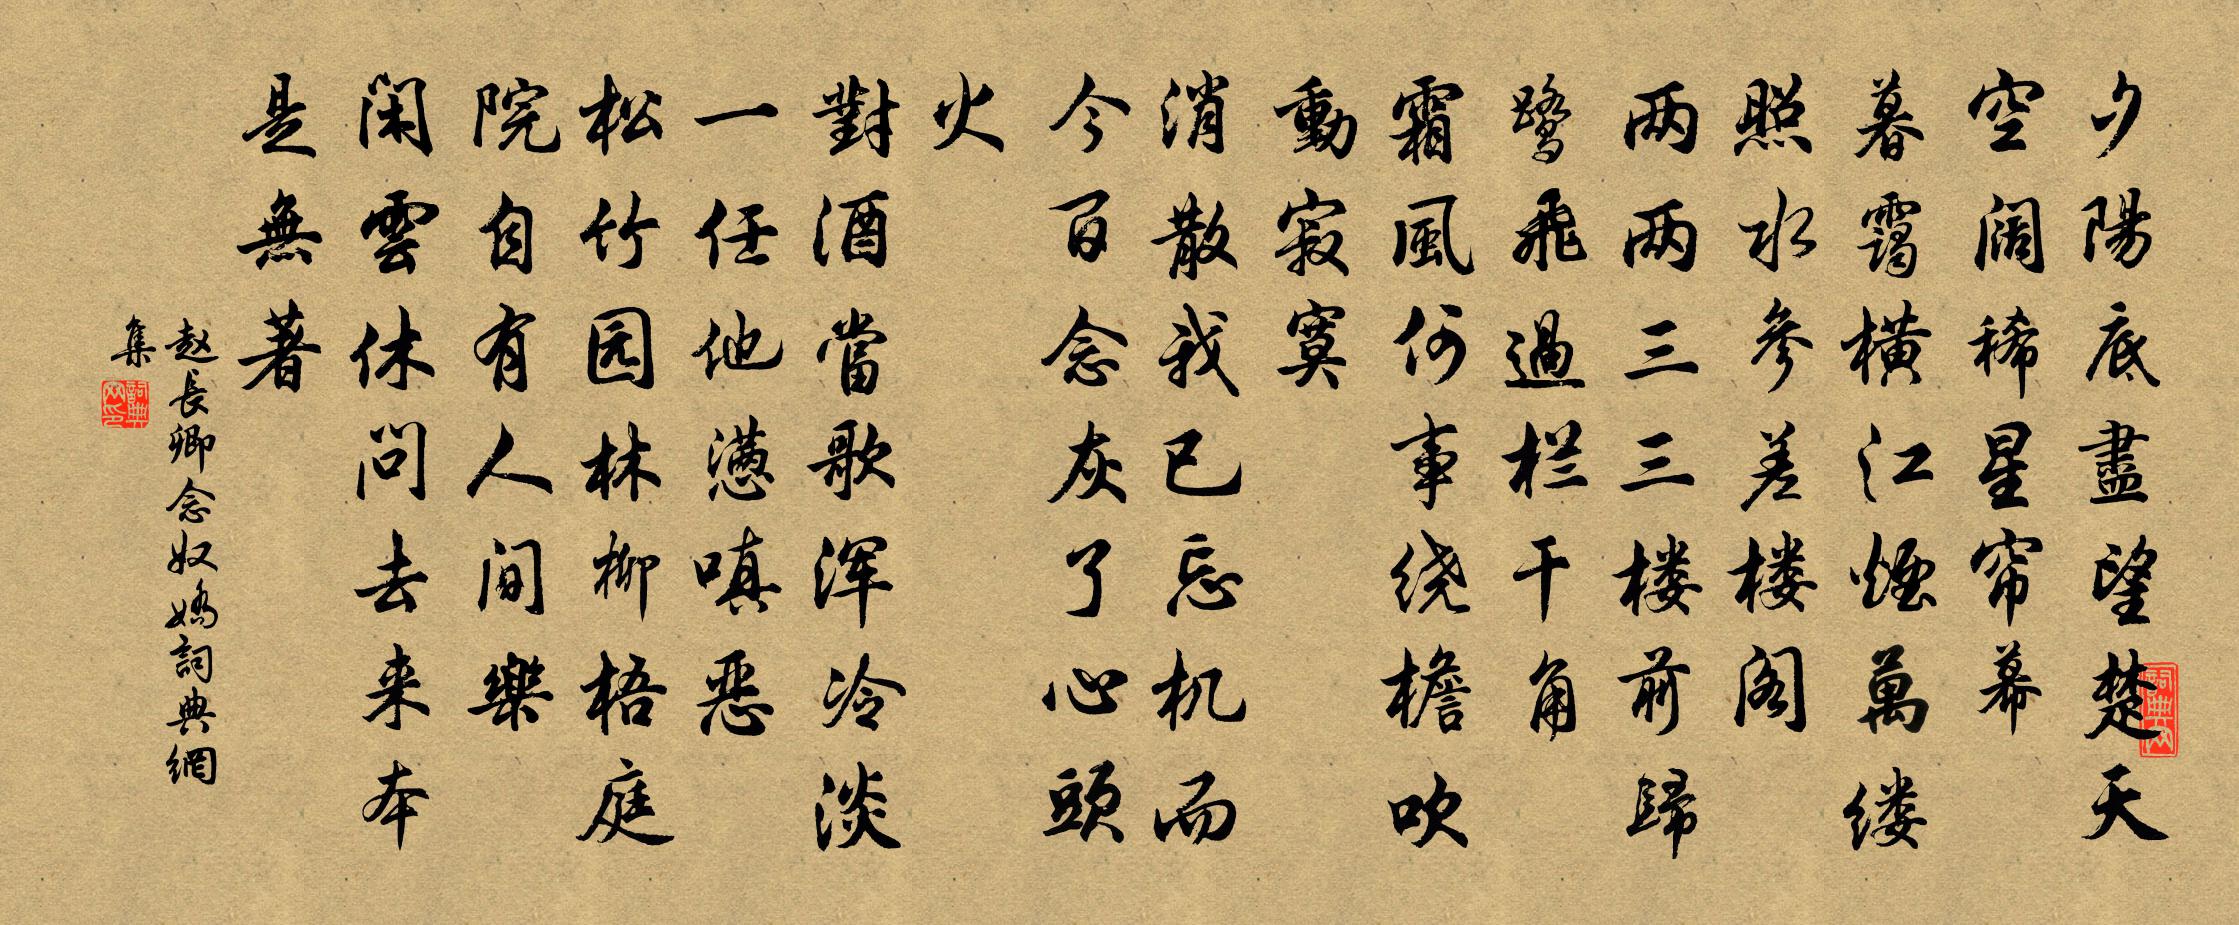 夕陽底盡望楚天
空阔稀星帘幕
暮靄橫江煙萬缕
照水參差楼阁
两两三三楼前歸
鹭飛過栏干角
霜風何事绕檐吹
動寂寞
消散我已忘机而
今百念灰了心頭
火
對酒當歌浑冷淡
一任他懑嗔恶
松竹园林柳梧庭
院自有人间樂
闲雲休问去来本
是無著
赵長卿念奴嬌詞典網
集
詞典网印
詞典网